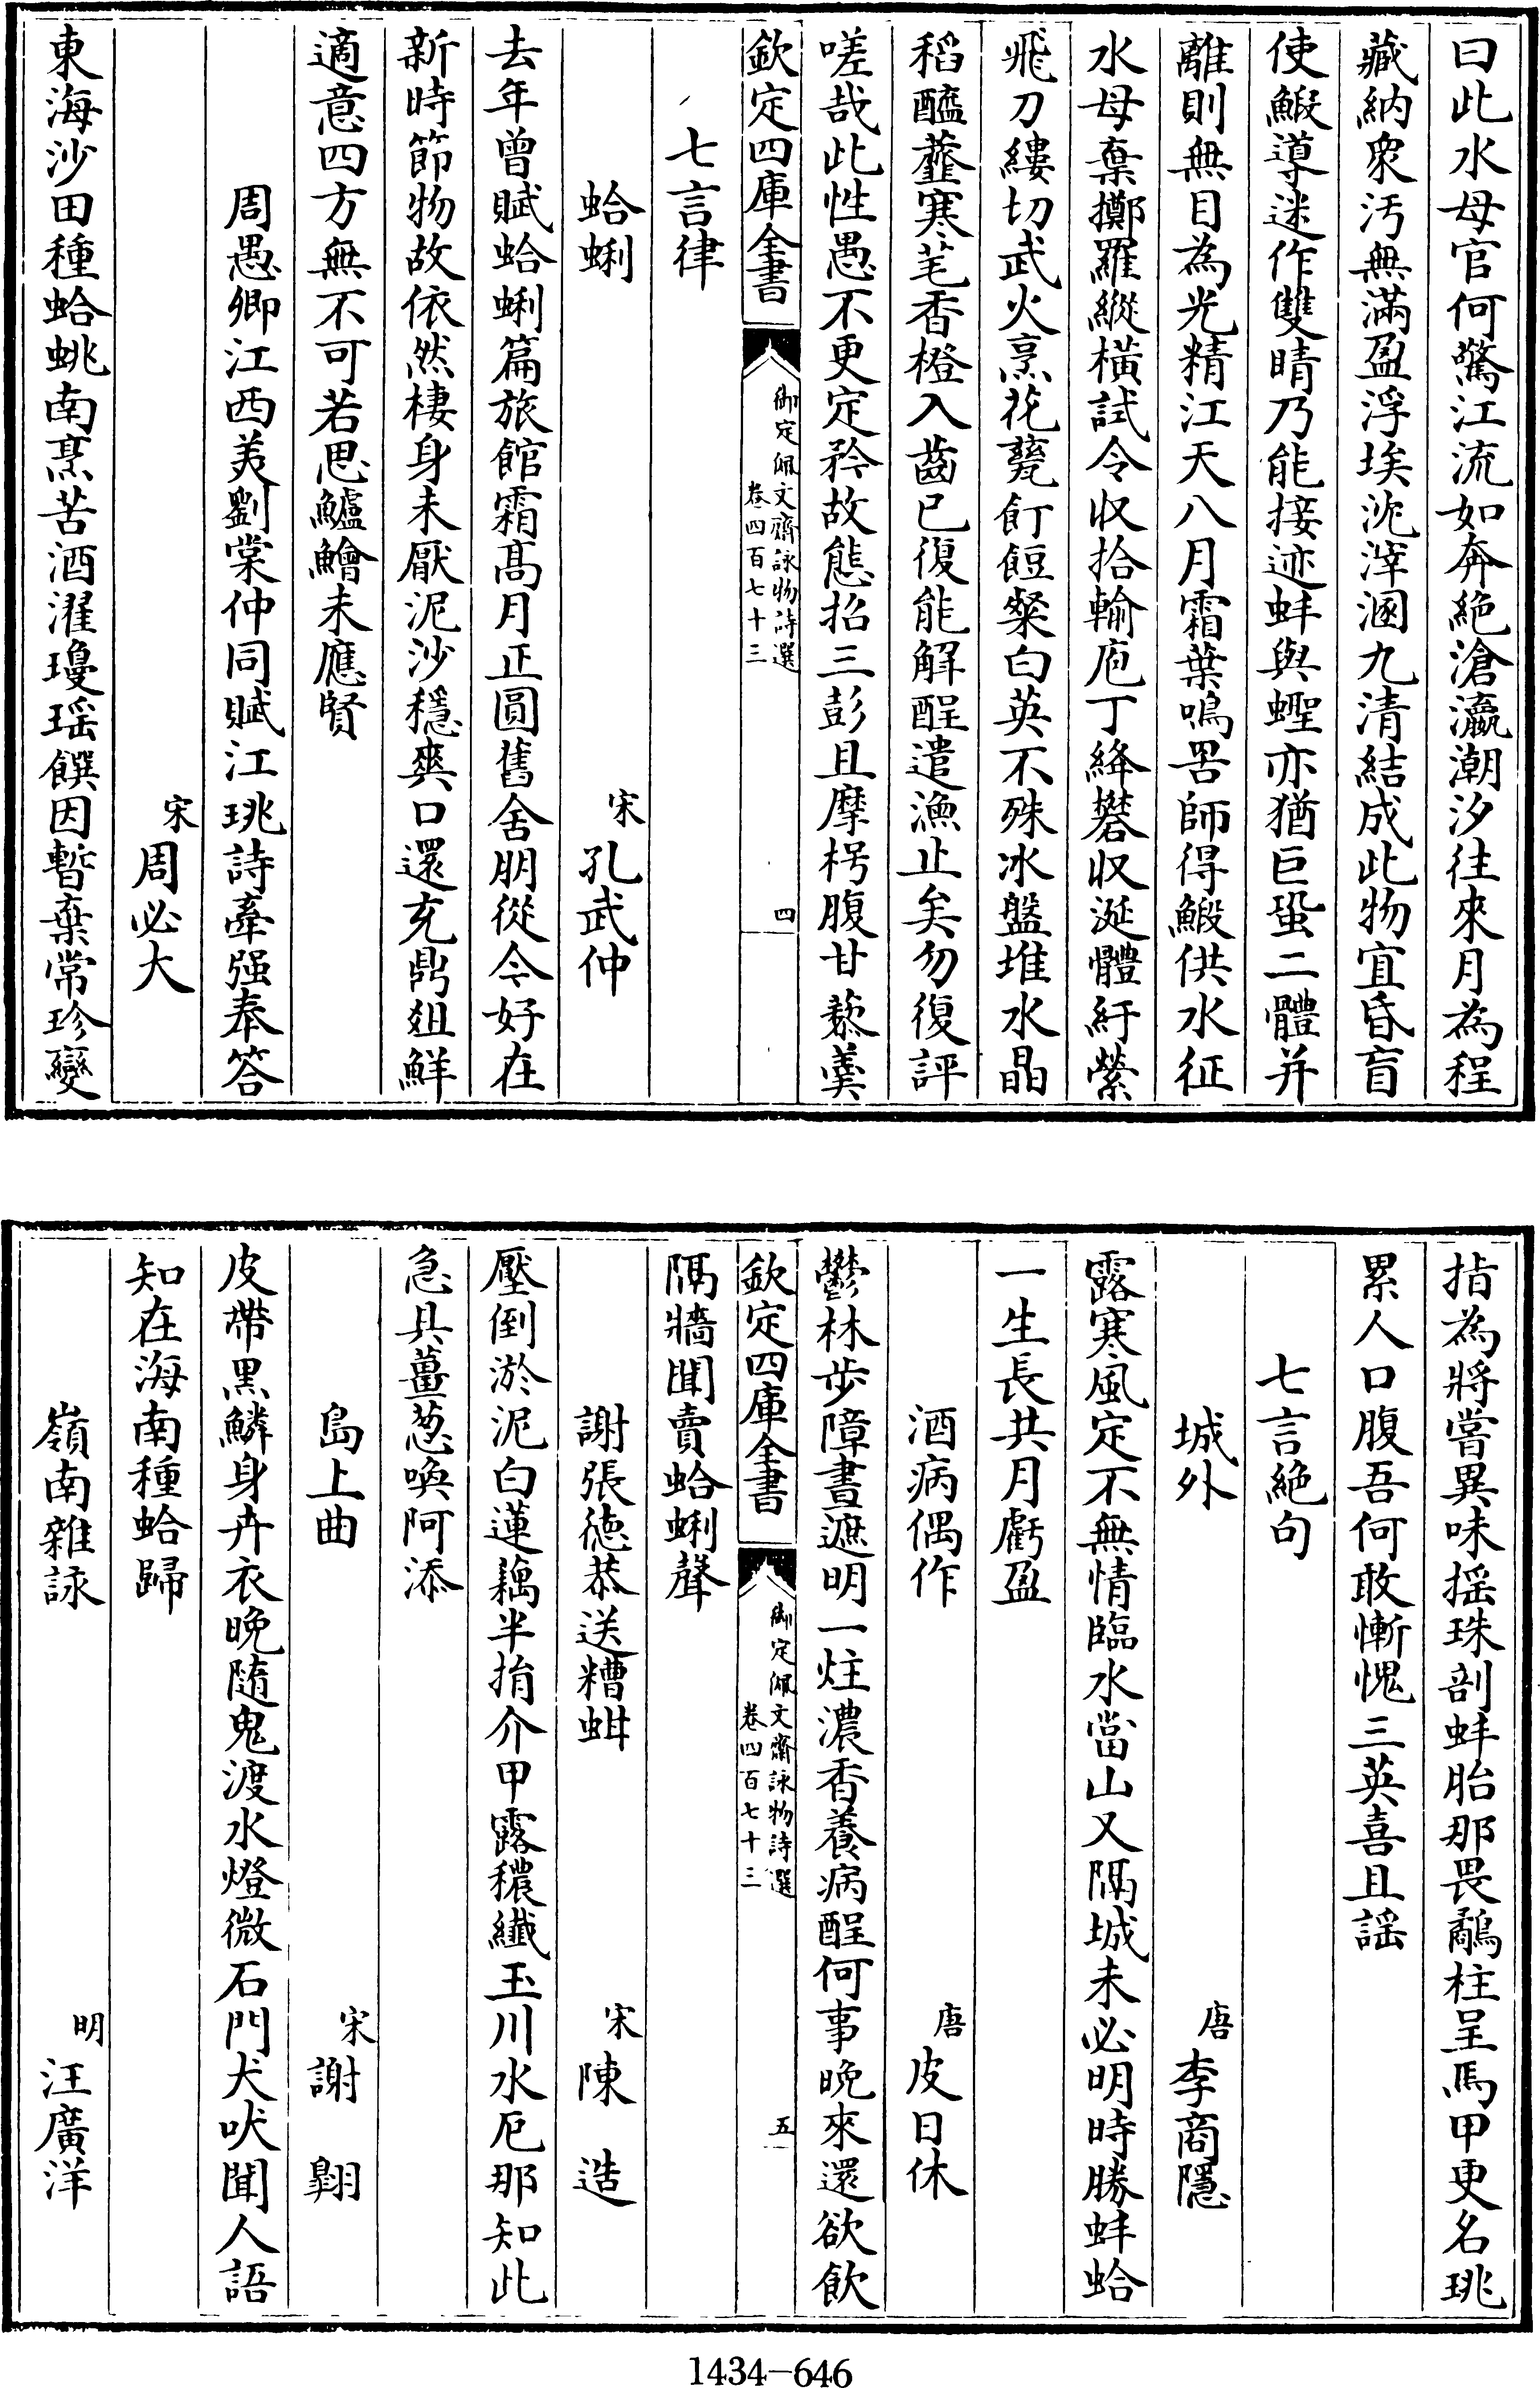 曰此水母官何驚江流如奔絶滄瀛潮汐往來月為程
藏納衆汚無滿盈浮埃沈滓溷九清結成此物宜昏盲
使鰕導迷作雙睛乃能接迹蚌與蟶亦猶巨蛩二體并
離則無目為光精江天八月霜葉鳴罟師得鰕供水征
水母棄擲羅縱橫試令収拾輸庖丁絳礬収涎體紆縈
飛刀縷切武火烹花甆飣餖粲白英不殊冰盤堆水晶
稻醯虀寒芼香橙入齒已復能解酲遣漁止矣勿復評
嗟哉此性愚不更定矜故態招三彭且摩枵腹甘藜羮
欽定四庫全書
御定佩文齋詠物詩選
卷四百七十三
四
七言律
蛤蜊
宋 孔武仲
去年曾賦蛤蜊篇旅館霜髙月正圓舊舍朋從今好在
新時節物故依然棲身未厭泥沙穩爽口還充鼎俎鮮
適意四方無不可若思鱸鱠未應賢
周愚卿江西美劉棠仲同賦江珧詩牽强奉答
宋 周必大
東海沙田種蛤蛦南烹苦酒濯瓊瑶饌因暫棄常珍變
指為將嘗異味揺珠剖蚌胎那畏鷸柱呈馬甲更名珧
累人口腹吾何敢慚愧三英喜且謡
七言絶句
城外
唐 李商隱
露寒風定不無情臨水當山又隔城未必明時勝蚌蛤
一生長共月虧盈
酒病偶作
唐 皮日休
鬱林步障晝遮明一炷濃香養病酲何事晚來還欲飲
欽定四庫全書
御定佩文齋詠物詩選
卷四百七十三
五
隔牆聞賣蛤蜊聲
謝張徳恭送糟蚶
宋 陳造
壓倒淤泥白蓮藕半揹介甲露穠纎玉川水厄那知此
急具薑葱喚阿添
島上曲
宋 謝翺
皮帶黒鱗身卉衣晚隨鬼渡水燈微石門犬吠聞人語
知在海南種蛤歸
嶺南雜詠
明 汪廣洋
1434-646